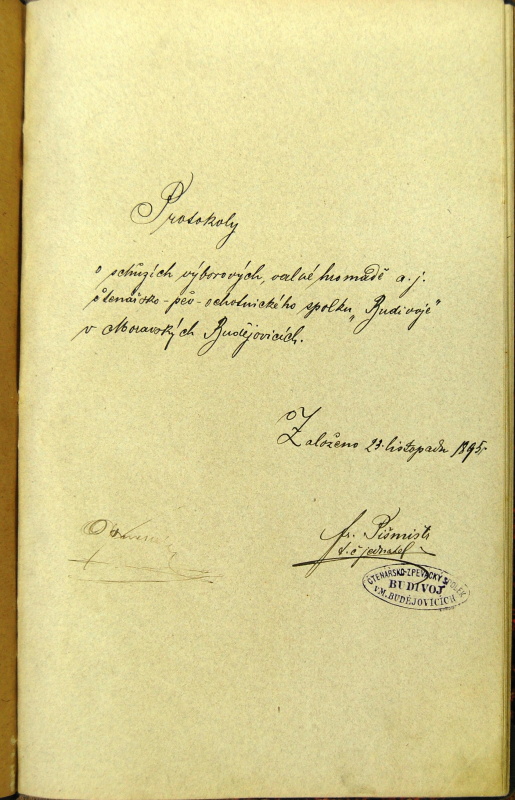 Protokoly
o schůzích výborových, valné hromadě a. j.
čtenářsko-pěv-ochotnického spolku „Budivoje"
v Moravských Budějovicích.
Založeno 23. listopadu 1895.
fr. Pišmišt
t. č. jednatel
ČTENÁŘSKO-ZPĚVÁCKÝ SPOLEK
BUDIVOJ
V M. BUDĚJOVICÍCH